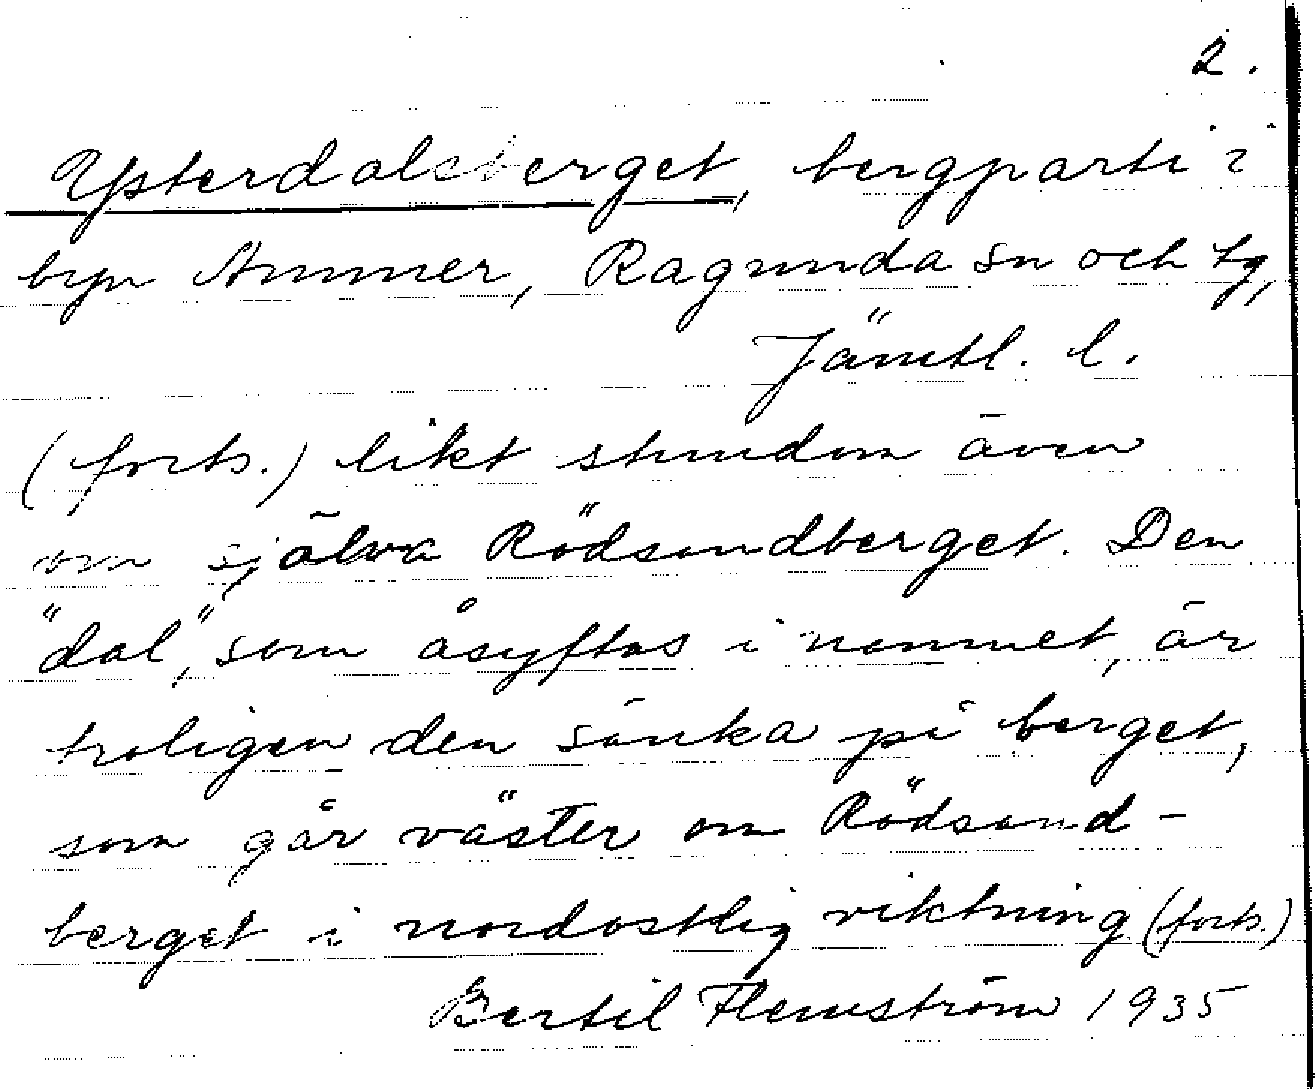 2.
Ysterdalsberget, bergparti i
byn Ammer, Ragunda sn och tg,
Jämtl. l.
(forts.) likt stundom även
om själva Rödsandberget. Den
"dal", som åsyftas i namnet, är
troligen den sänka på berget,
som går väster om Rödsand-
berget i nordostlig riktning (forts.)
Bertil Flemström 1935